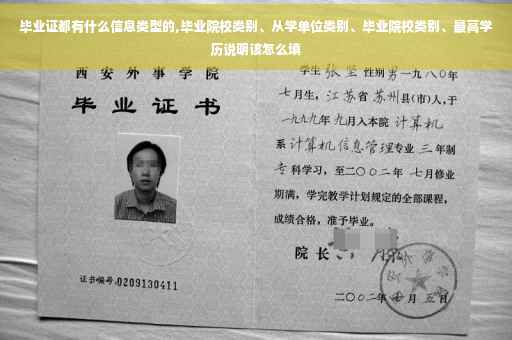 毕业证都有什么信息类型的,毕业院校类别、从学单位类别、毕业院校类别、最高学
历说明该怎么填
西安外事学院
毕业证书
证书编号:0209130411
学生 张坚 性别 男 一九八〇年
七月生，江苏省 苏州县(市)人,于
一九九九年 九月入本院 计算机
系 计算机信息管理专业 三 年制
专 科学习，至二〇〇二年 七月修业
期满，学完教学计划规定的全部课程，
成绩合格，准予毕业。
院长
二〇〇二年 月五日